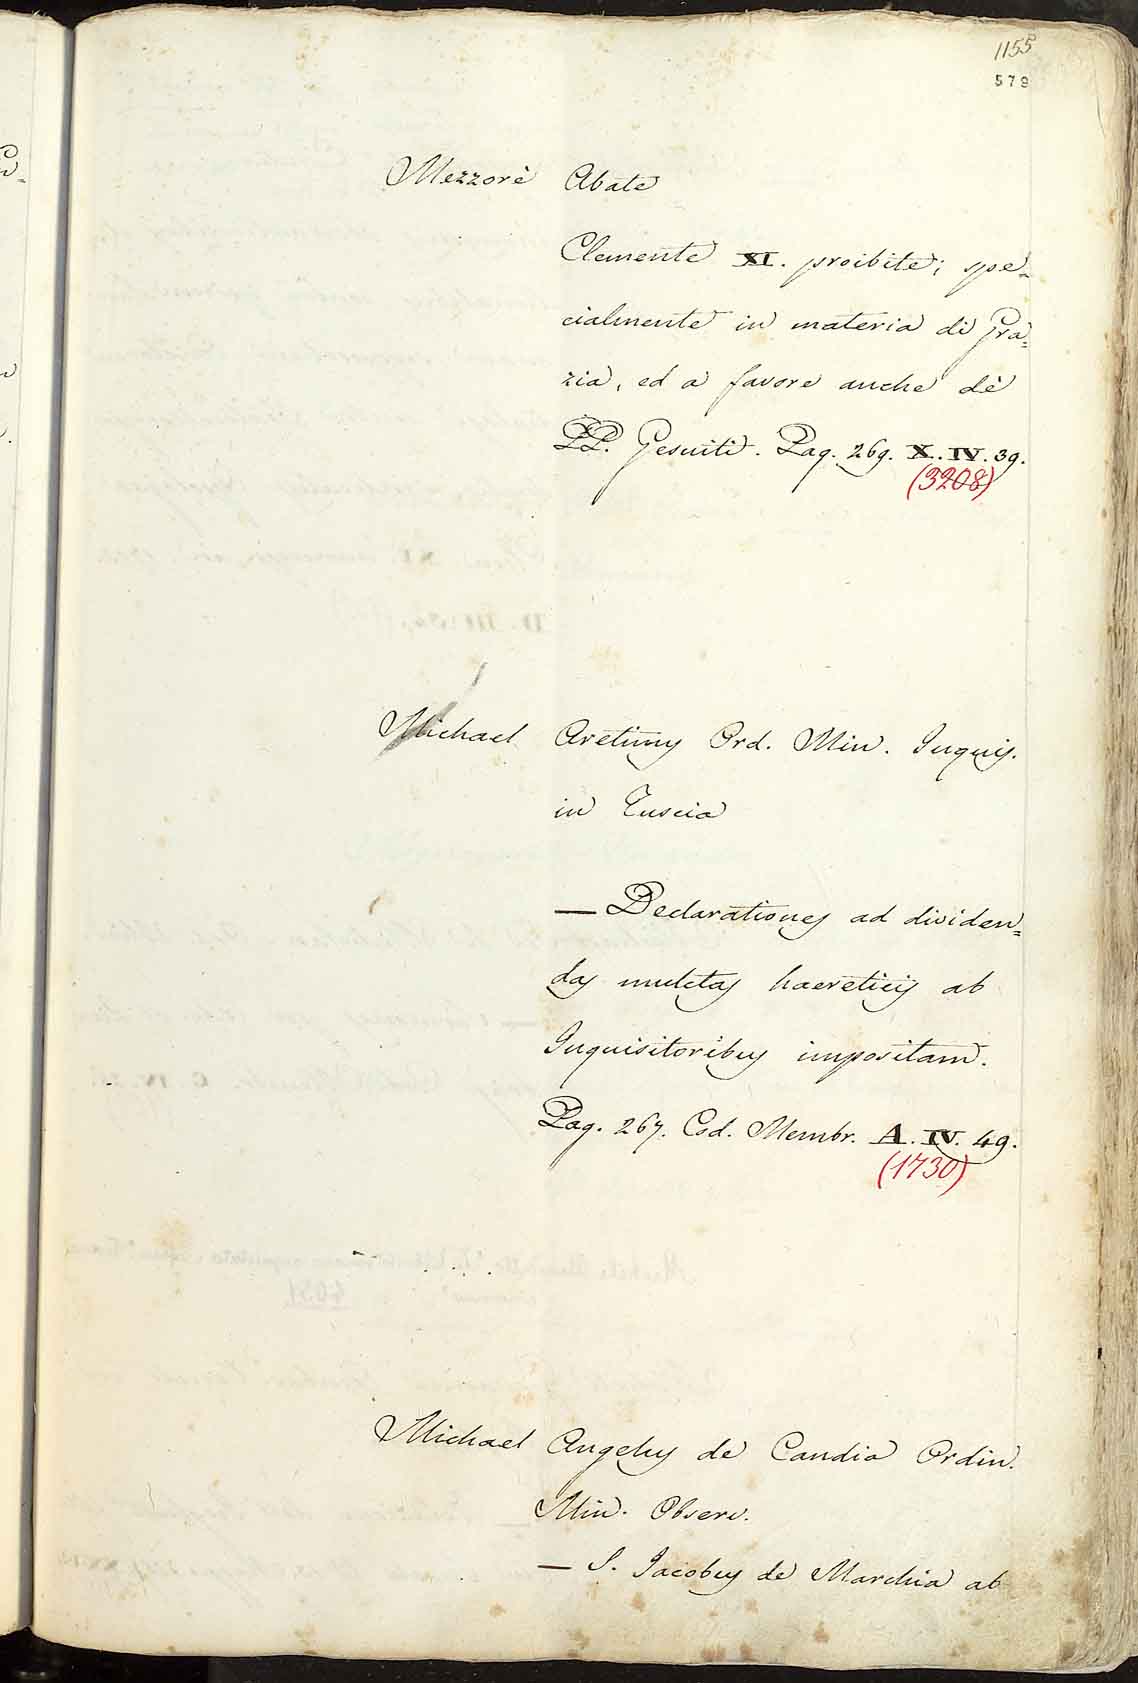 1155
579
Mezzorè Abate
Clemente XI. proibite; spe-
cialmente in materia di Gra=
zia, ed a favore anche dè
PP. Gesuiti. Pag. 269. X. IV. 39.
(3208)
Michael Aretinus Ord. Min. Inquis.
in Tuscia
— Declarationes ad dividen=
das mulctas haereticis ab
Inquisitoribus impositam.
Pag. 267. Cod. Membr. A. IV. 49.
(1730)
Michael Angelus de Candia Ordin.
Min. Observ.
— S. Jacobus de Marchia ab